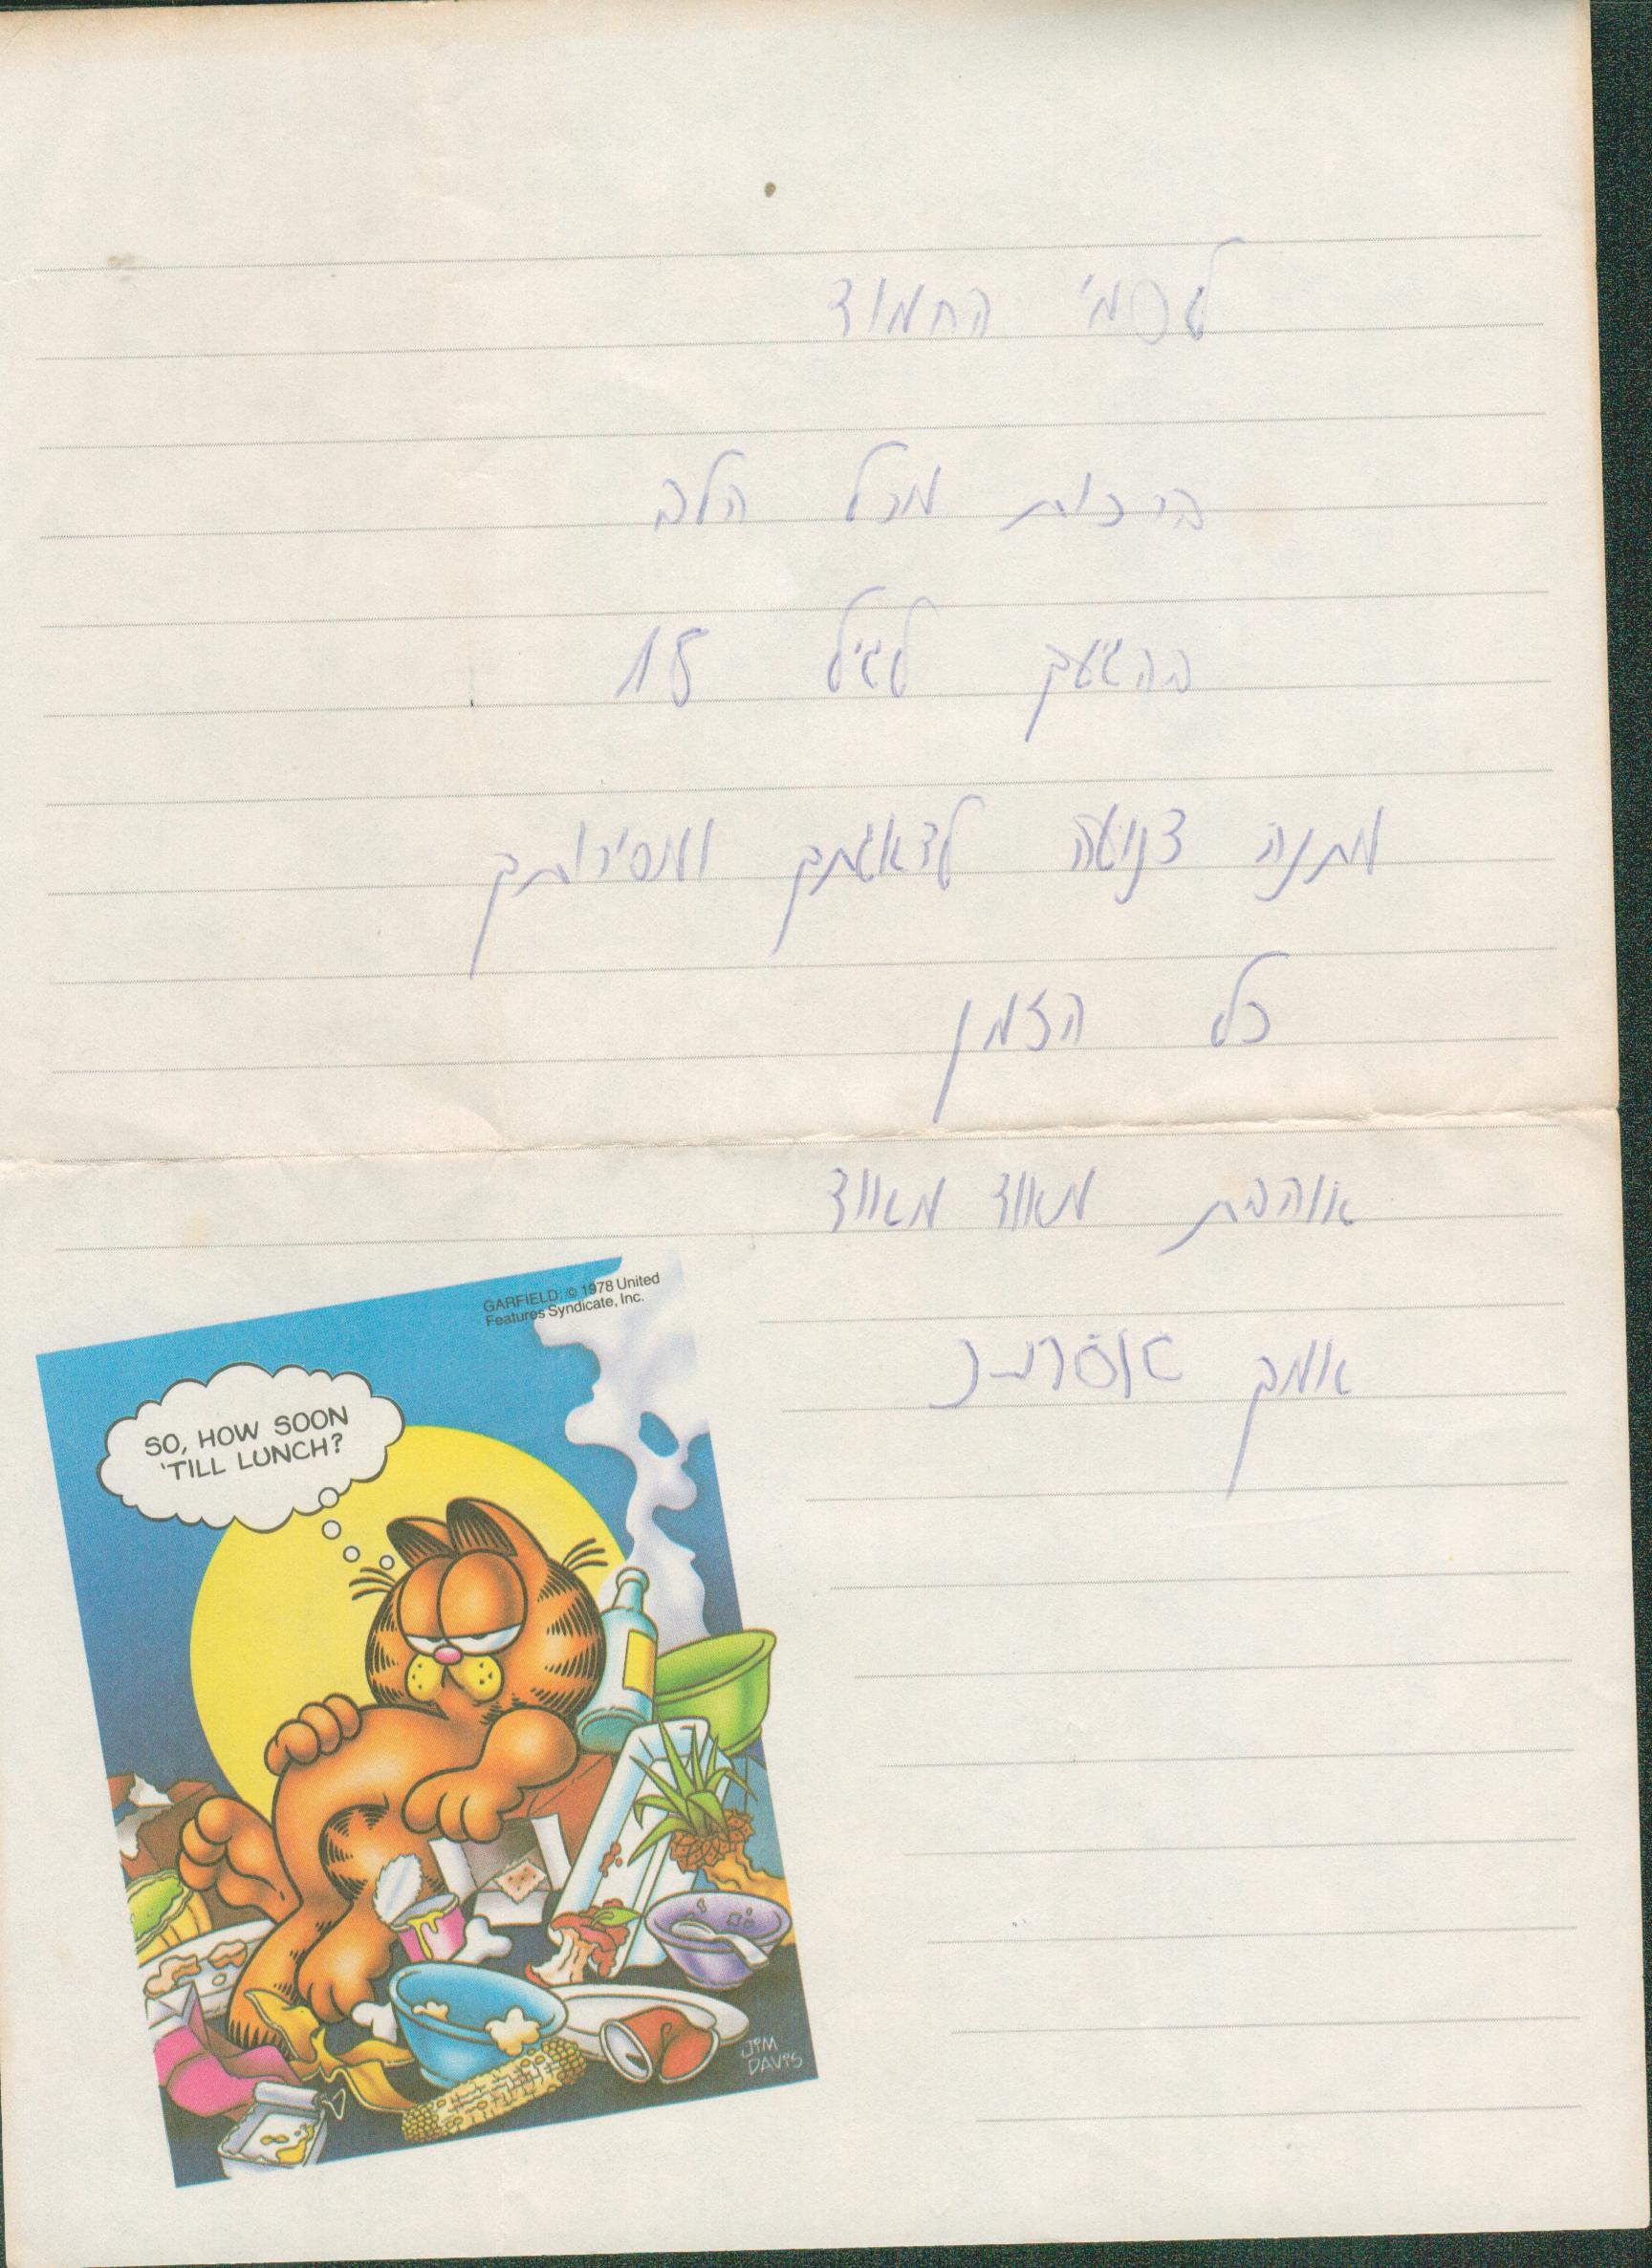 החמוד
ברכות מכל הלב
בהגיעך לגיל 18
מתנה צנועה לדאגתך ומסירותך
כל הזמן
אוהבת מאוד מאוד
אמך
GARFIELD: © 1978 United
Features Syndicate, Inc.
SO, HOW SOON
'TILL LUNCH?
JIM
DAVIS